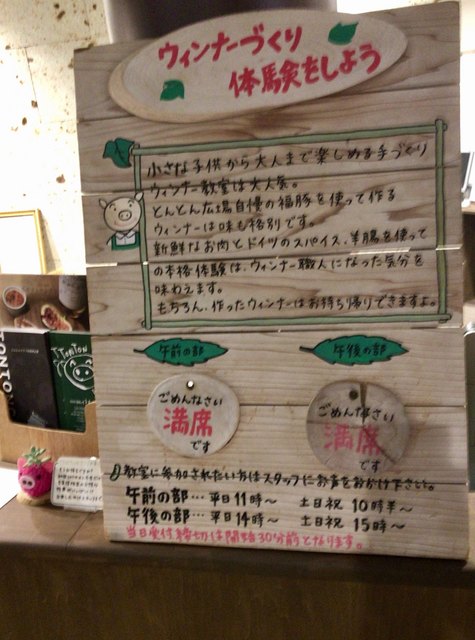 ウィンナーづくり
体験をしよう
小さな子供から大人まで楽しめる手づくり
ウィンナー教室は大人気。
とんとん広場自慢の福豚を使って作る
ウィンナーは味も格別です。
新鮮なお肉とドイツのスパイス、羊腸を使って
の本格体験は、ウィンナー職人になった気分を
味わえます。
もちろん、作ったウィンナーはお持ち帰りできますよ。
午前の部
午後の部
ごめんなさい
満席
です
ごめんなさい
満席
です
教室に参加されたい方はスタッフにお声をおかけ下さい。
午前の部…平日11時〜 土日祝 10時半〜
午後の部…平日14時〜 土日祝 15時〜
当日受付締切は開始30分前となります。
TONTON